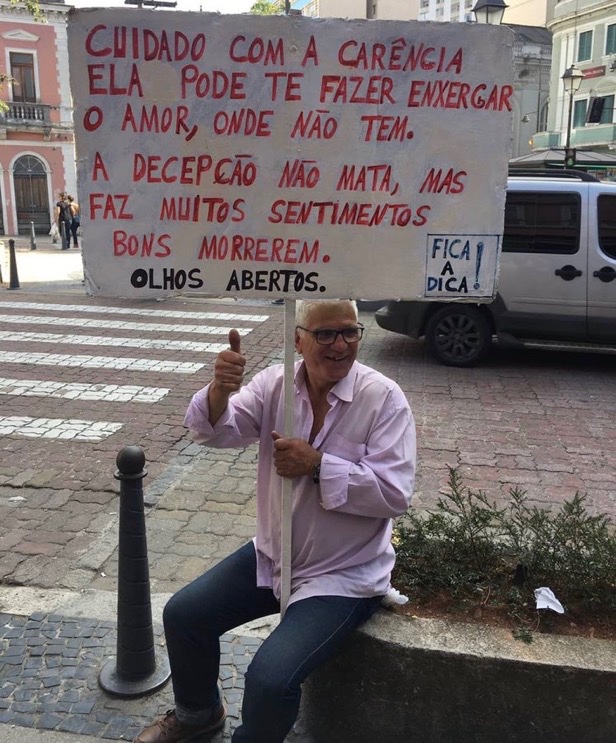 CUIDADO COM A CARÊNCIA
ELA PODE TE FAZER ENXERGAR
O AMOR, ONDE NÃO TEM.
A DECEPÇÃO NÃO MATA, MAS
FAZ MUITOS SENTIMENTOS
BONS MORREREM.
OLHOS ABERTOS.
FICA
A
DICA!